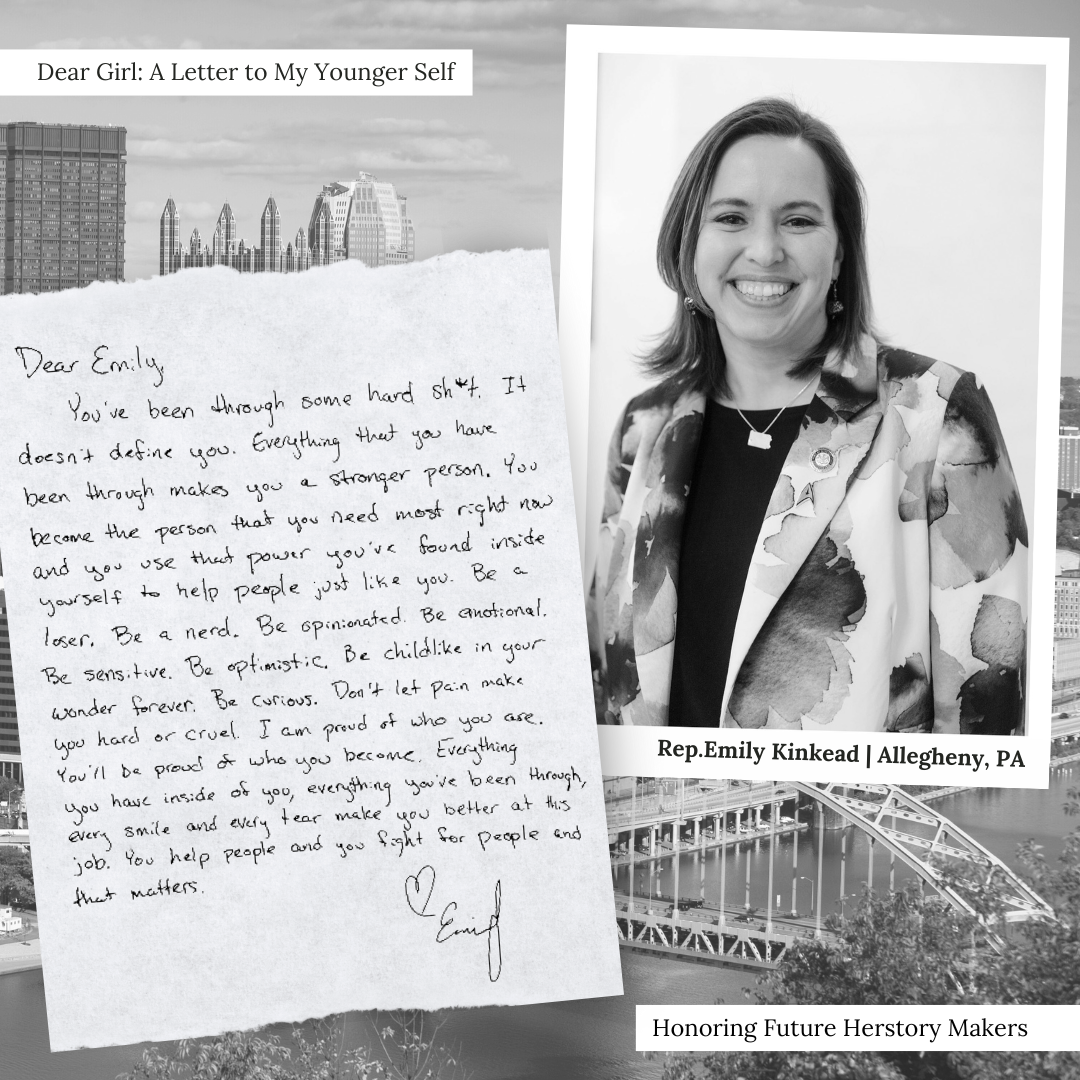 Dear Girl: A Letter to My Younger Self
Dear Emily,
You've been through some hard sh*t. It
doesn't define you. Everything that you have
been through makes you a stronger person. You
become the person that you need most right now
and you use that power you've found inside
yourself to help people just like you. Be a
loser. Be a nerd. Be opinionated. Be emotional.
Be sensitive. Be optimistic. Be childlike in your
wonder forever. Be curious. Don't let pain make
you hard or cruel. I am proud of who you are.
You'll be proud of who you become. Everything
you have inside of you, everything you've been through,
every smile and every tear make you better at this
job. You help people and you fight for people and
that matters.
Emily
Rep.Emily Kinkead | Allegheny, PA
Honoring Future Herstory Makers